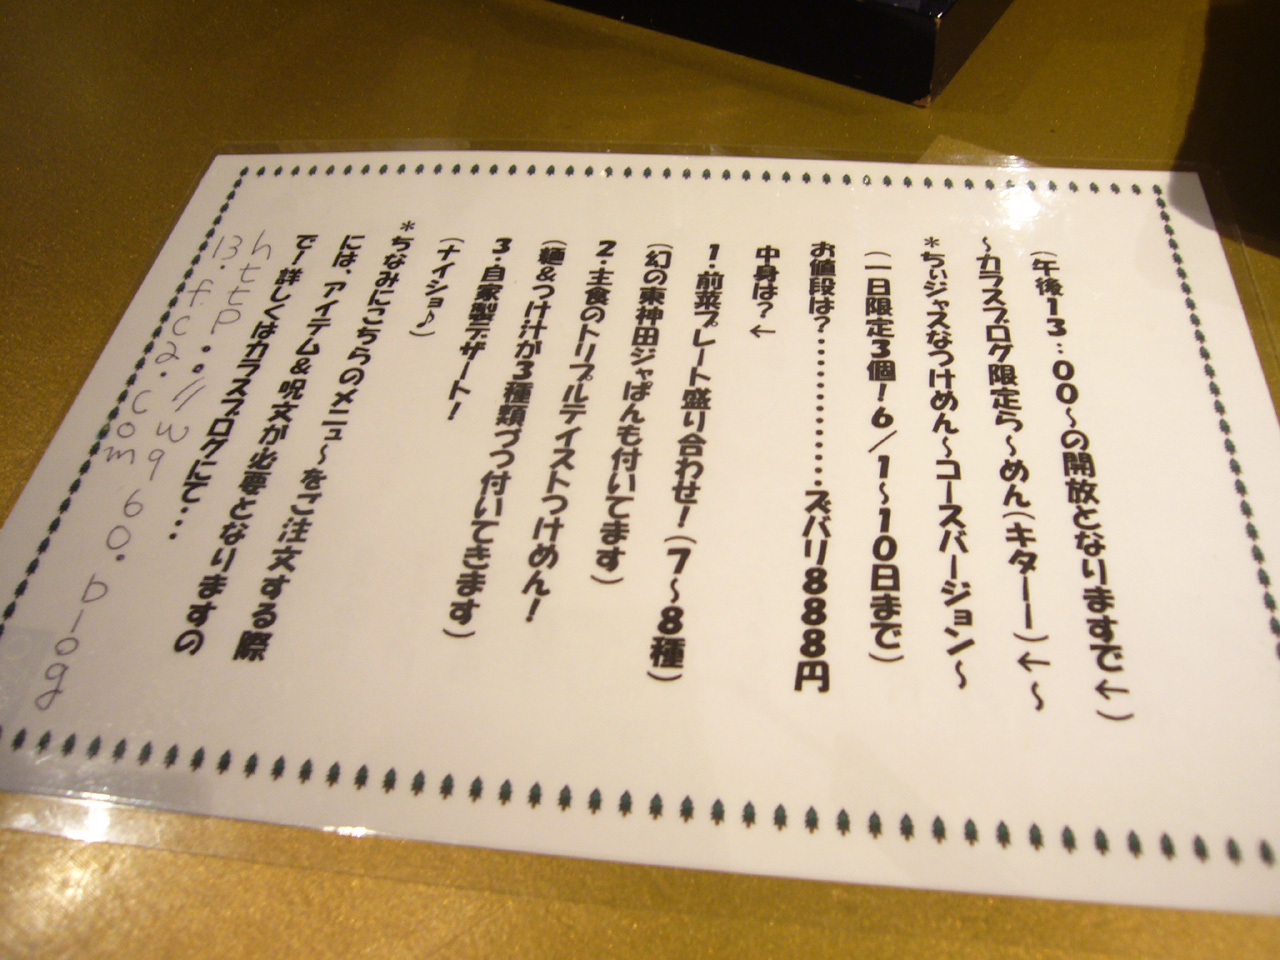 (午後13:00～の開放となりますで←)
～カラスブログ限定ら～めん(キターー)←～
*ちぃジャスなつけめん～コースバージョン～
(一日限定3個!6/1～10日まで)
お値段は?・・・・・・・・・・・・ズバリ888円
中身は?←
1・前菜プレート盛り合わせ!(7～8種)
(幻の東神田ジャぱんも付いてます)
2・主食のトリプルテイストつけめん!
(麺&つけ汁が3種類づつ付いてきます)
3・自家製デザート!
(ナイショ♪)
*ちなみにこちらのメニュ～をご注文する際
には、アイテム&呪文が必要となりますの
で!詳しくはカラスブログにて・・・
http://wq60.blog
13.fc2.com